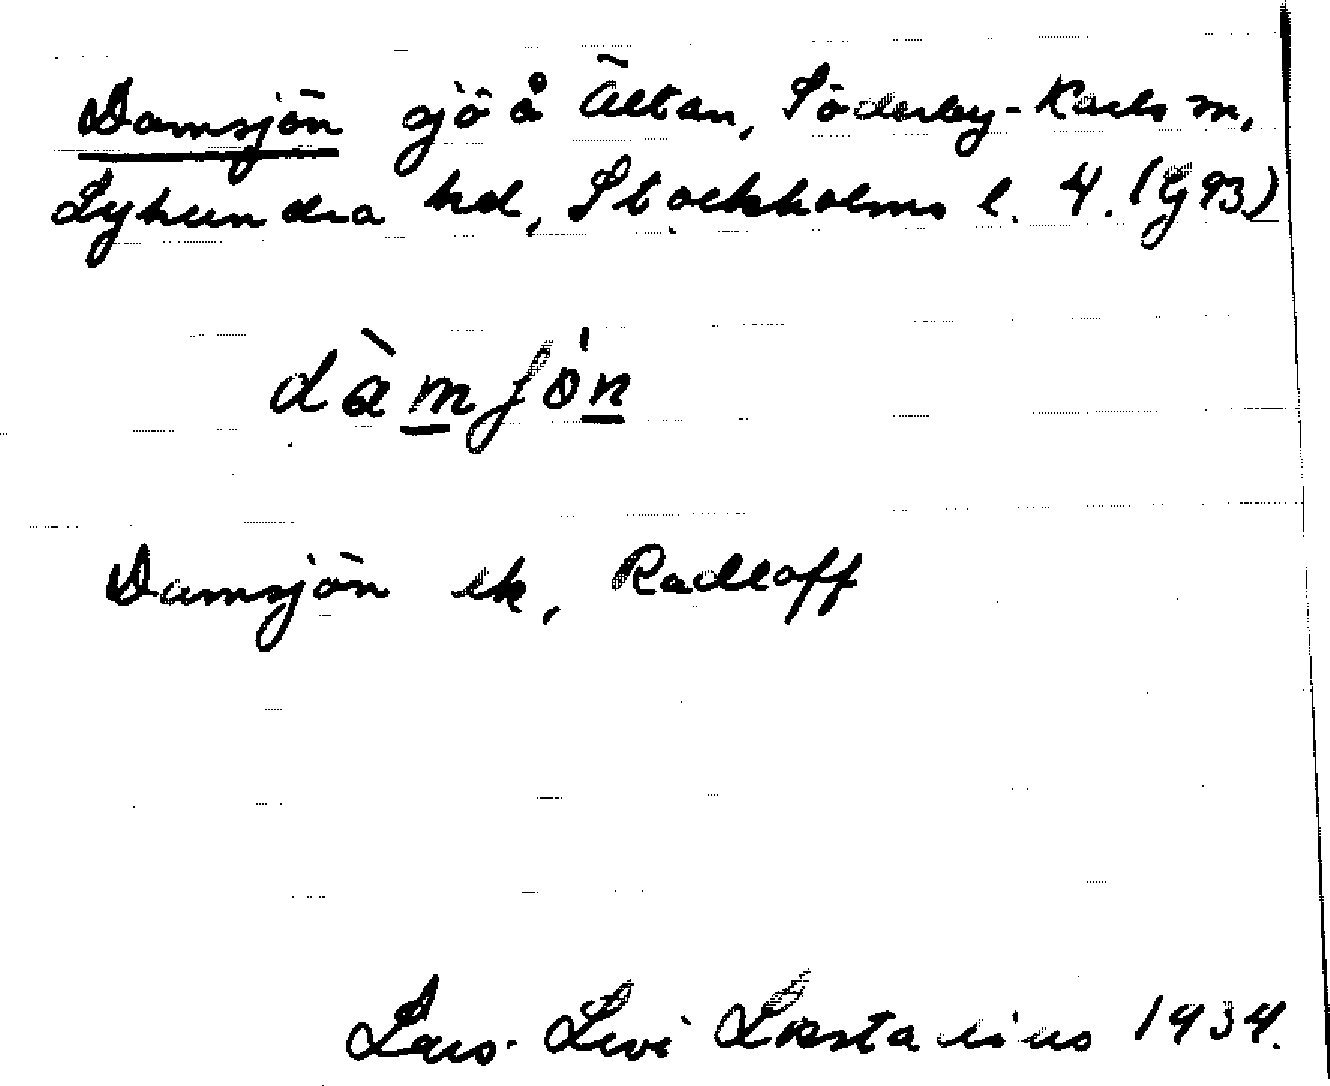 Damsjön sjö å Ältan, Söderby-Karls sn,
Lyhundra hd, Stockholms l. 4. (G93)
dàmʃö́n
Damsjön ek, Radloff
Lars-Levi Læstadius 1934.